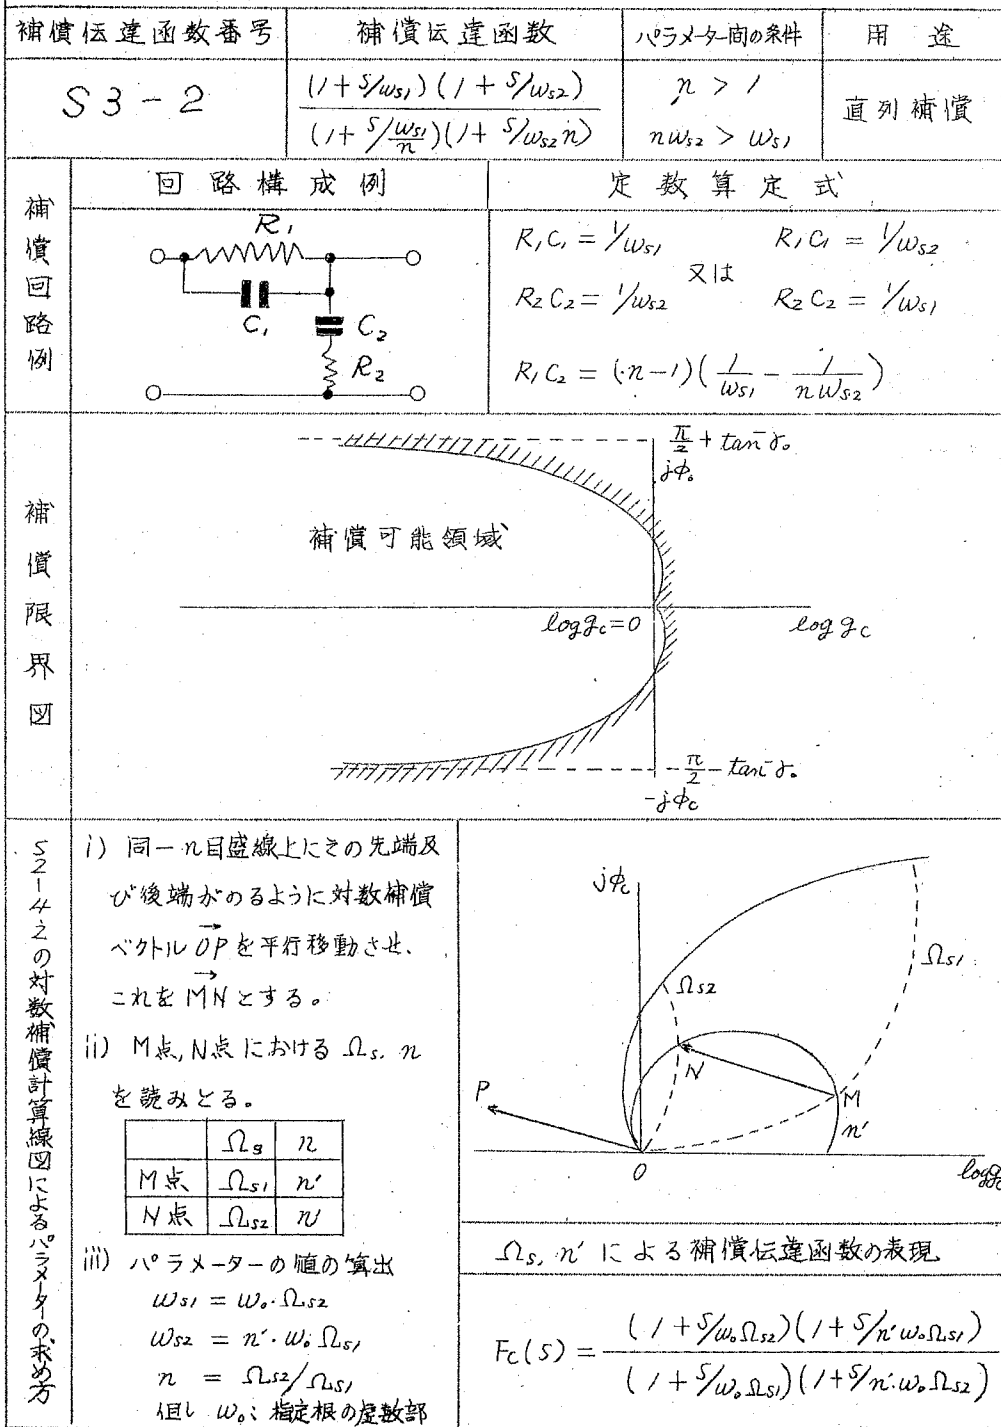 補償伝達函数番号 補償伝達函数 パラメーター間の条件 用途
S3-2
(1+S/ωs1)(1+S/ωs2)
(1+S/(ωs1/n))(1+S/ωs2n)
n > 1
nωs2 > ωs1
直列補償
補償回路例
回路構成例
R1
C1
C2
R2
定数算定式
R1C1 = 1/ωs1 R1C1 = 1/ωs2
又は
R2C2 = 1/ωs2 R2C2 = 1/ωs1
R1C2 = (n-1)(1/ωs1 - 1/nωs2)
補償限界図
π/2 + tan⁻γ₀
jφ₀
補償可能領域
log gc=0
log gc
-π/2 - tan⁻γ₀
-jφc
S2-4-2の対数補償計算線図によるパラメータの求め方
i) 同一n目盛線上にその先端及
び後端がのるように対数補償
ベクトルOP→を平行移動させ、
これをMN→とする。
ii) M点,N点におけるΩs, n
を読みとる。
Ωs n
M点 Ωs1 n'
N点 Ωs2 n'
iii) パラメーターの値の算出
ωs1 = ω₀·Ωs2
ωs2 = n'·ω₀·Ωs1
n = Ωs2/Ωs1
但し ω₀; 指定根の虚数部
jφc
Ωs1
Ωs2
N
M
P
n'
0
log gc
Ωs, n' による補償伝達函数の表現
Fc(S) = (1+S/ω₀Ωs2)(1+S/n'ω₀Ωs1)
(1+S/ω₀Ωs1)(1+S/n'·ω₀Ωs2)